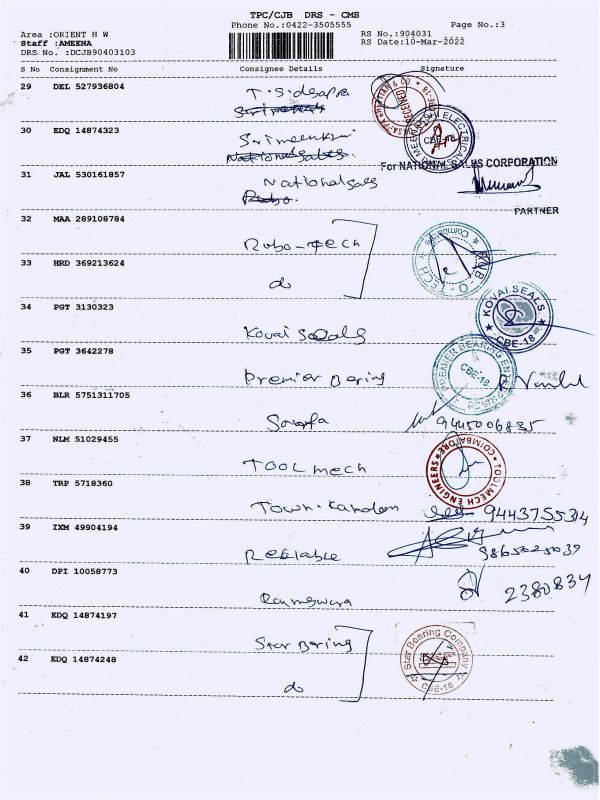 TPC/CJB DRS - CMS
Phone No.:0422-3505555
Page No.:3
Area :ORIENT H W
RS No.:904031
Staff :AMEENA
RS Date:10-Mar-2022
DRS No. :DCJB90403103
S No Consignment No Consignee Details Signature
29 DEL 527936804
30 EDQ 14874323 Srimeenkshi
MEENAKSHI ELECTRICAL
CBE-18
For NATIONAL SALES CORPORATION
31 JAL 530161857 National sales
PARTNER
32 MAA 289108784 Robo-Tech
33 HRD 369213624 do
34 PGT 3130323 Kovai Seals
KOVAI SEALS
CBE-18
35 PGT 3642278 Premier Bering
CBE-18
36 BLR 5751311705
9445006835
37 NLM 51029455 TOOL mech
TOOLMECH ENGINEERS COIMBATORE
38 TRP 5718360
39 IXM 49904194 Reliable
9865025039
40 DPI 10058773
2380834
41 EDQ 14874197 Star Bering
Star Bearing Company
CBE-18
42 EDQ 14874248 do